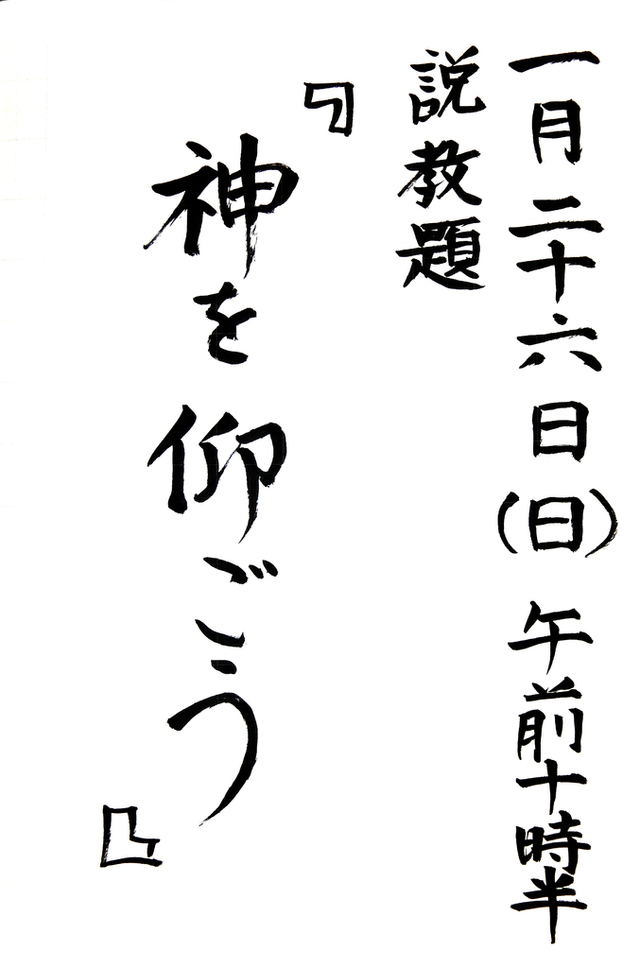 一月二十六日(日)午前十時半
説教題
『神を仰ごう』